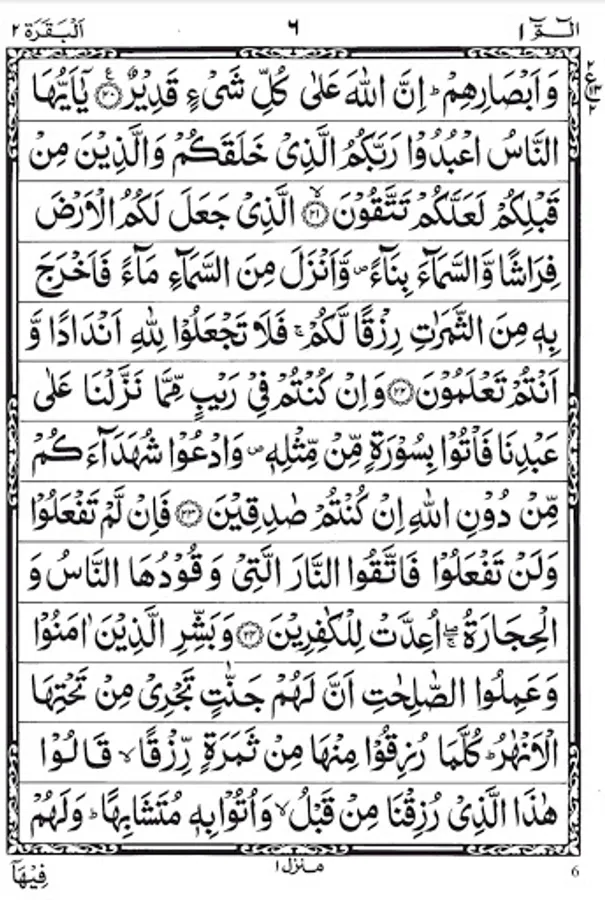 الٓمّٓ ١ ٦ اَلْبَقَرَة ٢
وَاَبْصَارِهِمْ ؕ اِنَّ اللّٰهَ عَلٰى كُلِّ شَىْءٍ قَدِيْرٌ ۧ ﴿۲۰﴾ يٰۤاَيُّهَا
النَّاسُ اعْبُدُوْا رَبَّكُمُ الَّذِىْ خَلَقَكُمْ وَالَّذِيْنَ مِنْ
قَبْلِكُمْ لَعَلَّكُمْ تَتَّقُوْنَ ۙ ﴿۲۱﴾ الَّذِىْ جَعَلَ لَكُمُ الْاَرْضَ
فِرَاشًا وَّالسَّمَآءَ بِنَآءً ۪ وَّاَنْزَلَ مِنَ السَّمَآءِ مَآءً فَاَخْرَجَ
بِهٖ مِنَ الثَّمَرٰتِ رِزْقًا لَّكُمْ ۚ فَلَا تَجْعَلُوْا لِلّٰهِ اَنْدَادًا وَّ
اَنْتُمْ تَعْلَمُوْنَ ﴿۲۲﴾ وَاِنْ كُنْتُمْ فِىْ رَيْبٍ مِّمَّا نَزَّلْنَا عَلٰى
عَبْدِنَا فَاْتُوْا بِسُوْرَةٍ مِّنْ مِّثْلِهٖ ۪ وَادْعُوْا شُهَدَآءَكُمْ
مِّنْ دُوْنِ اللّٰهِ اِنْ كُنْتُمْ صٰدِقِيْنَ ﴿۲۳﴾ فَاِنْ لَّمْ تَفْعَلُوْا
وَلَنْ تَفْعَلُوْا فَاتَّقُوا النَّارَ الَّتِىْ وَقُوْدُهَا النَّاسُ وَ
الْحِجَارَةُ ۖۚ اُعِدَّتْ لِلْكٰفِرِيْنَ ﴿۲۴﴾ وَبَشِّرِ الَّذِيْنَ اٰمَنُوْا
وَعَمِلُوا الصّٰلِحٰتِ اَنَّ لَهُمْ جَنّٰتٍ تَجْرِىْ مِنْ تَحْتِهَا
الْاَنْهٰرُ ؕ كُلَّمَا رُزِقُوْا مِنْهَا مِنْ ثَمَرَةٍ رِّزْقًا ۙ قَالُوْا
هٰذَا الَّذِىْ رُزِقْنَا مِنْ قَبْلُ ۙ وَاُتُوْا بِهٖ مُتَشَابِهًا ؕ وَلَهُمْ
6 منزل ١ فِيْهَآ